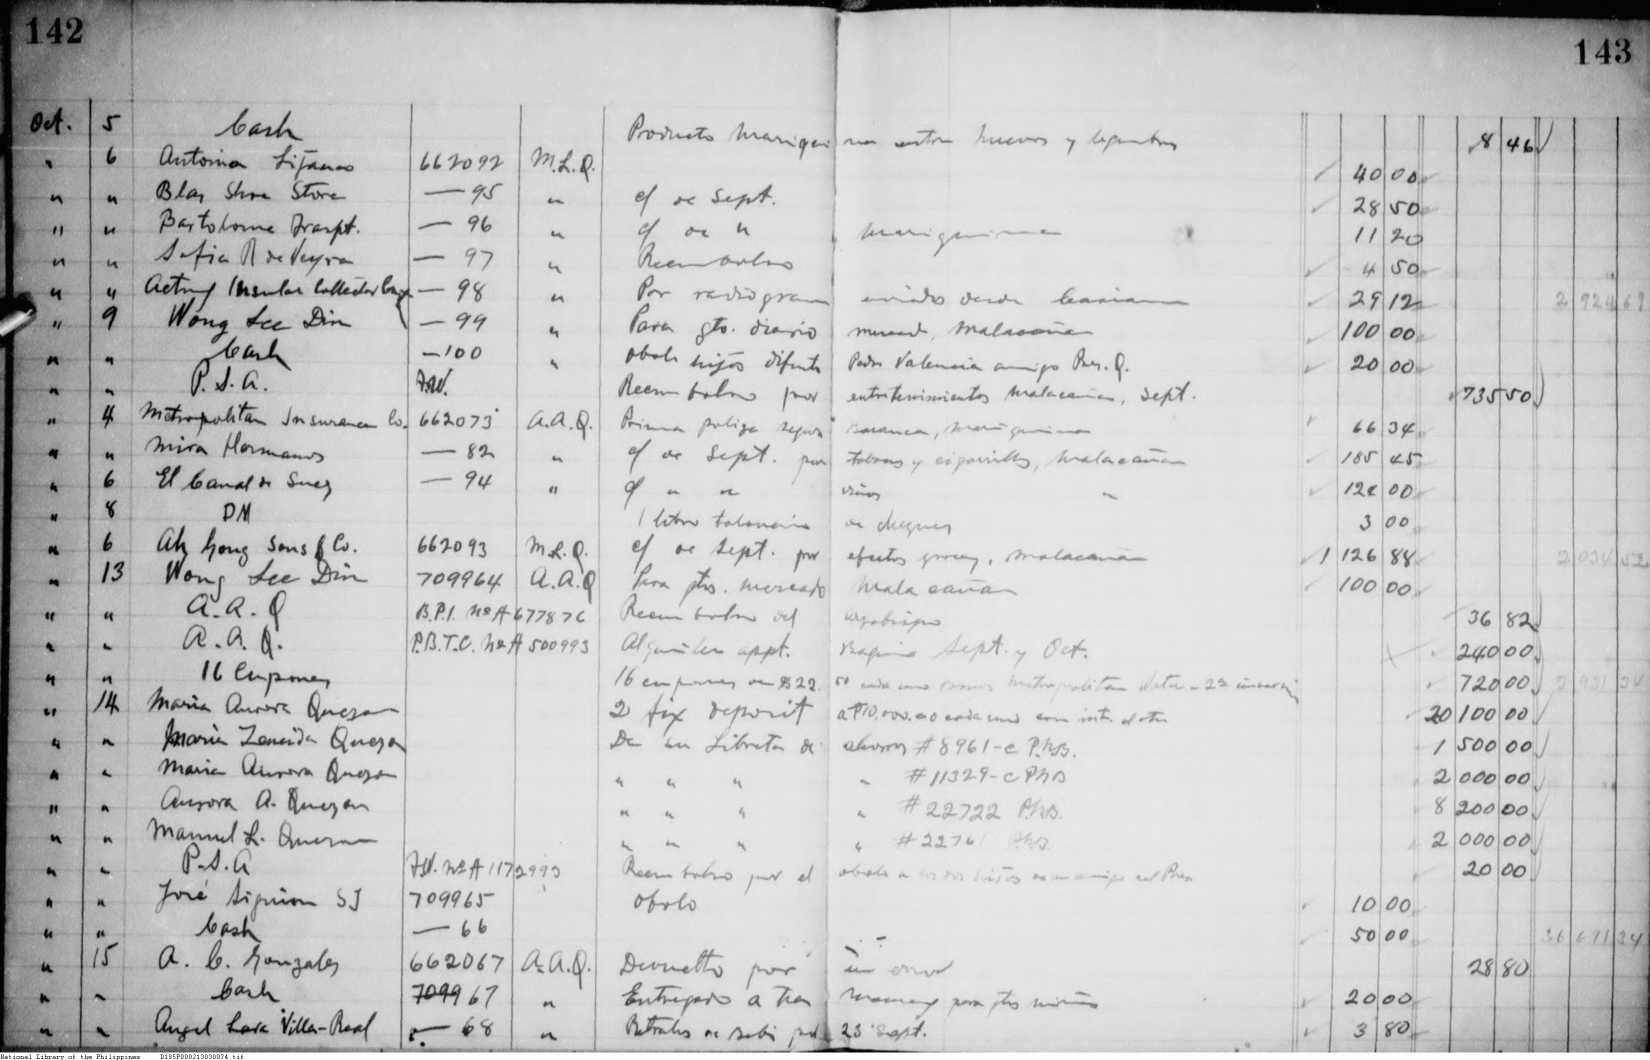 142
143
Oct. 5 Cash Producto Mariquina entre huevos y legumbres 8 46
" 6 Antonia 662092 M.L.Q. 40 00
" " Blas Shoe Store — 95 " c/ de Sept. 28 50
" " Bartolome Transpt. — 96 " c/ de " Mariquina 11 20
" " Sofia R de Veyra — 97 " Reembolso 4 50
" " Acting Insular Collector — 98 " Por radiogram enviados desde 29 12 2 924 69
" 9 Wong See Din — 99 " Para gto. diario mercado, Malacañan 100 00
" " Cash — 100 " obolo hijos difunto Padre Valencia amigo Pres. Q. 20 00
" " P.S.A. Reembolso por entretenimientos Malacañan, Sept. 735 50
" 4 Metropolitan Insurance Co. 662075 A.A.Q. Prima poliza seguro Mariquina 66 34
" " Mira Hermanos — 82 " c/ de Sept. por tabacos y cigarrillos, Malacañan 185 45
" 6 El Canal de Suez — 94 " c/ " " vinos " 00
" 8 DM 1 libro talonario de cheques 3 00
" 6 Ah Gong Sons & Co. 662093 M.L.Q. c/ de Sept. por efectos grocery, Malacañan 1 126 88
" 13 Wong See Din 709964 A.A.Q Para gtos. mercado Malacañan 100 00
" " A.A.Q B.P.I. No A 677876 Reembolso del arzobispo 36 82
" " A.A.Q. P.B.T.C. No A 500993 Alquiler appt. Baguio Sept. y Oct. 240 00
" " 16 Cupones 16 cupones de $22.50 cada uno bonos Metropolitan Water 720 00
" 14 Maria Aurora Quezon 2 fix deposit a ₱10,000.00 cada uno con int. 20 100 00
" " Maria Zeneida Quezon De su Libreta de ahorros #8961-c P.N.B. 1 500 00
" " Maria Aurora Quezon " " " " #11329-c PNB 2 000 00
" " Aurora A. Quezon " " " " #22722 P.N.B. 8 200 00
" " Manuel L. Quezon " " " " #22761 PNB. 2 000 00
" " P.S.A No A 1172993 Reembolso por el obolo a los dos hijos de un amigo del Pres 20 00
" " José Siguion SJ 709965 obolo 10 00
" " Cash — 66 50 00 36 691 34
" 15 A. C. Gonzales 662067 A.A.Q. Devuelto por un error 28 80
" " Cash 709967 " Entregado a para gtos niños 20 00
" " Angel Lara Villa-Real — 68 " Retratos de 23 Sept. 3 80
National Library of the Philippines D185P000213030074.tif